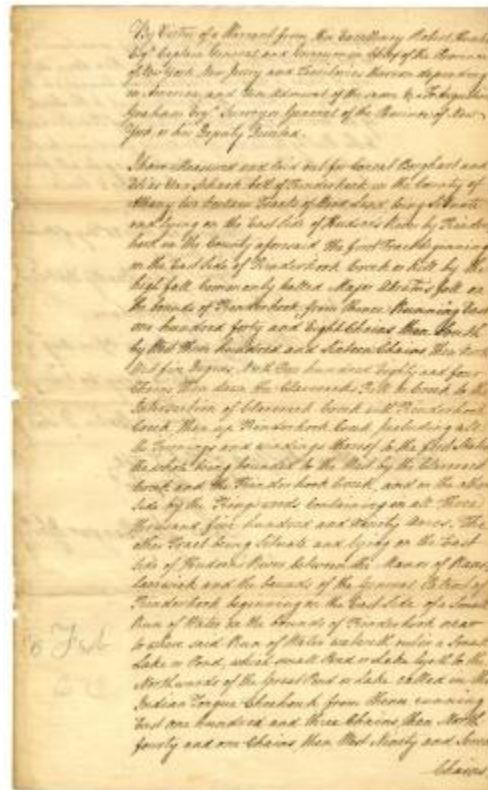 By Virtue of a Warrant from his Excellency Robert Hunter
Esqr. Captain General and Governour in Chief of the Province
of New York New Jersey and Territories thereon depending
in America and Vice Admiral of the same &c To Augustine
Graham Esqr. Surveyor General of the Province of New
York or his Deputy Directed
I have Measured and laid out for Conraet Borghart and
Elias Van Schaack both of Kinderhook in the County of
Albany two Certain Tracts of Land being Situate
and lying on the East Side of Hudsons River by Kinder
hook in the County aforesaid the first Tract beginning
on the East Side of Kinderhook Creek or Kill by the
high fall Commonly Called Major Abra fall on
the bounds of Kinderhook, from thence Running East
one hundred forty and Eight Chains then South
by West three hundred and Sixteen Chains then North
West five Degrees North Two hundred Eighty and four
Chains then down the Claverack Kill or Creek to the
Intersection of Claverack Creek with Kinderhook
Creek, then up Kinderhook Creek, including all
the Turnings and windings thereof to the first Station
the whole being bounded to the West by the Claverack
Creek and the Kinderhook Creek, and on the other
Side by the woods Containing in all Three
thousand five hundred and Ninety Acres. The
other Tract being Situate and lying on the East
Side of Hudsons River between the Manor of Rans
laerwick and the bounds of the General Patent of
Kinderhook beginning on the East Side of a Small
Run of Water on the bounds of Kinderhook near
to where said Run of Water watereth into a Small
Lake or Pond, which small Pond or Lake lyeth to the
Northwards of the Great Pond or Lake called in the
Indian Tongue from thence running
East one hundred and three Chains then North
fourty and one Chains, then West Ninety and Seven
Chains